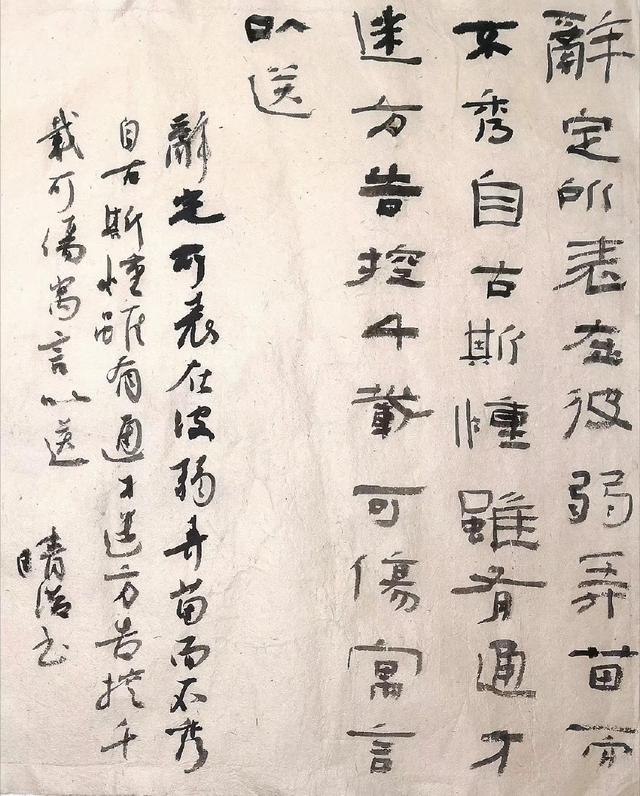 辭定所表在彼弱弄苗而
不秀自古斯慟雖有通才
迷方告控千載可傷寓言
以送
辭定所表在彼弱弄苗而不秀
自古斯慟雖有通才迷方告控千
載可傷寓言以送
晴书